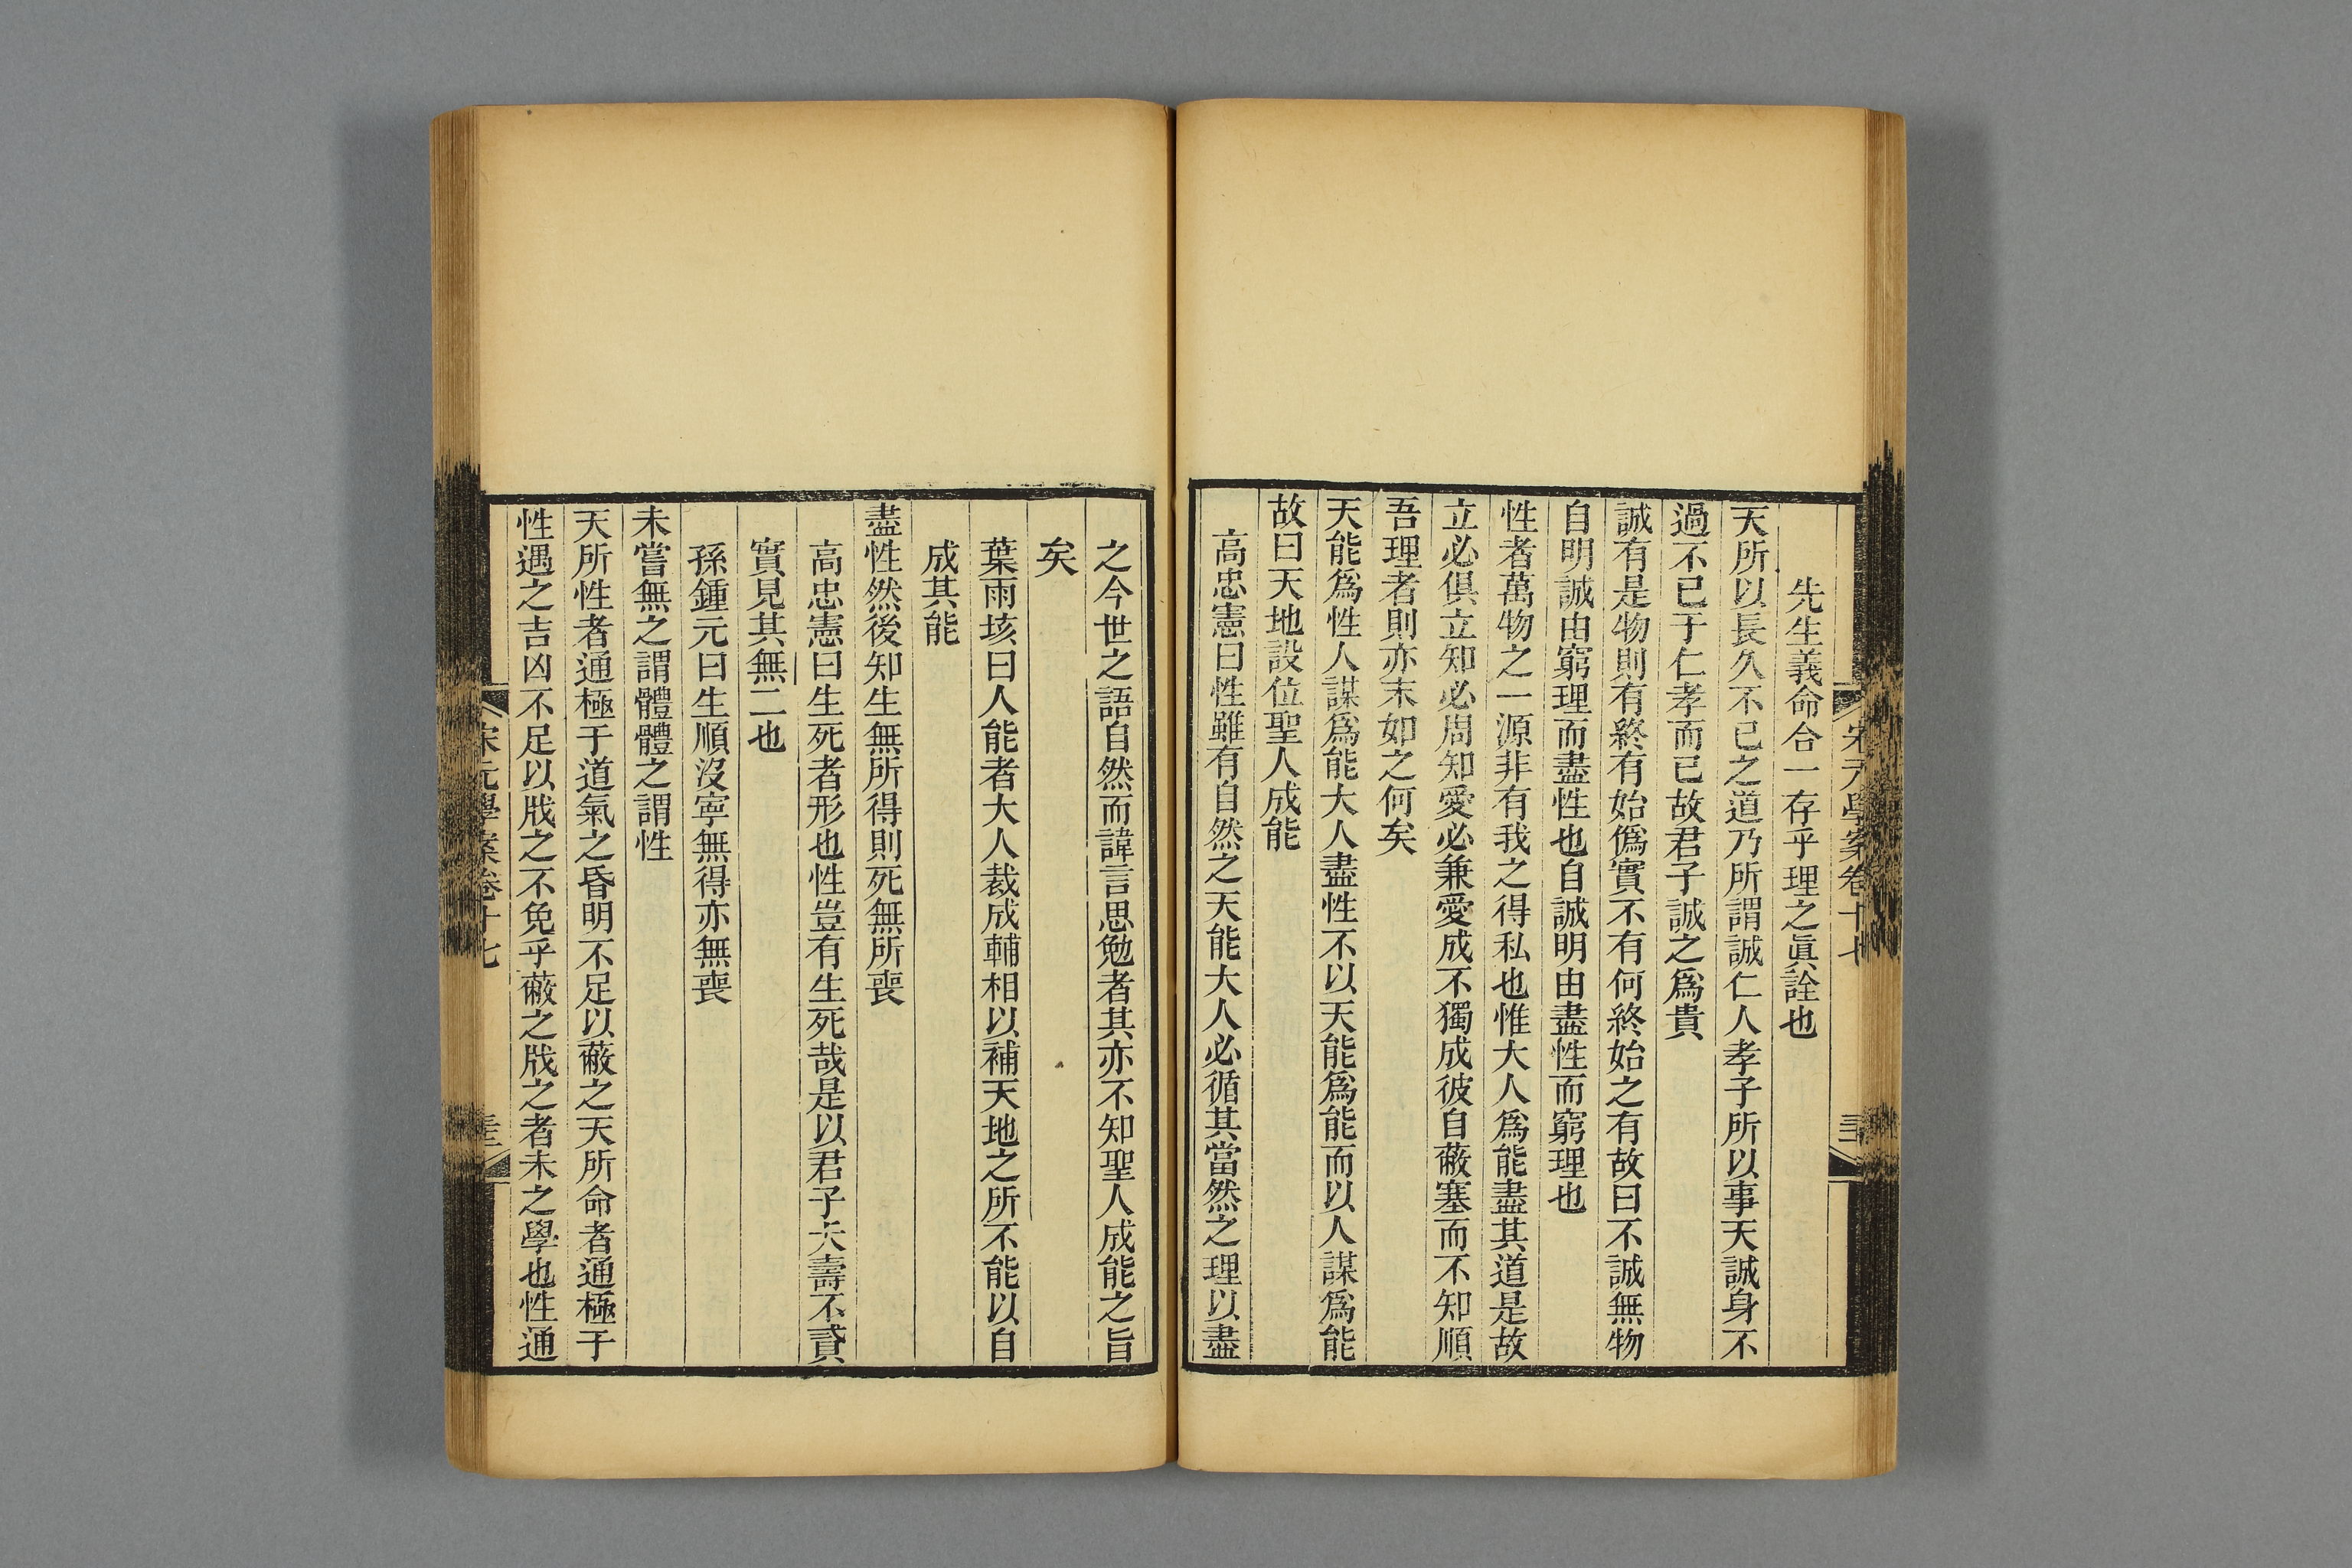 宋元學案卷十七
先生義命合一存乎理之眞詮也
天所以長久不已之道乃所謂誠仁人孝子所以事天誠身不
過不已于仁孝而已故君子誠之爲貴
誠有是物則有終有始僞實不有何終始之有故曰不誠無物
自明誠由窮理而盡性也自誠明由盡性而窮理也
性者萬物之一源非有我之得私也惟大人爲能盡其道是故
立必俱立知必周知愛必兼愛成不獨成彼自蔽塞而不知順
吾理者則亦末如之何矣
天能爲性人謀爲能大人盡性不以天能爲能而以人謀爲能
故曰天地設位聖人成能
高忠憲曰性雖有自然之天能大人必循其當然之理以盡
之今世之語自然而諱言思勉者其亦不知聖人成能之旨
矣
葉雨垓曰人能者大人裁成輔相以補天地之所不能以自
成其能
盡性然後知生無所得則死無所喪
高忠憲曰生死者形也性豈有生死哉是以君子夭壽不貳
實見其無二也
孫鍾元曰生順沒寧無得亦無喪
未嘗無之謂體體之謂性
天所性者通極于道氣之昏明不足以蔽之天所命者通極于
性遇之吉凶不足以戕之不免乎蔽之戕之者未之學也性通
宋元學案卷十七